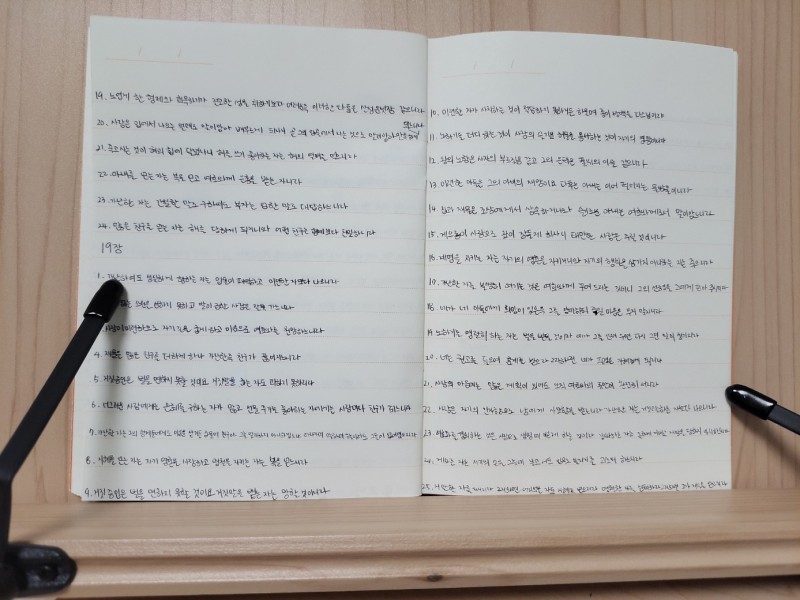 19. 노엽게 한 형제와 화목하기가 견고한 성을 취하기보다 어려운즉 이러한 다툼은 산성문빗장 같으니라
20. 사람은 입에서 나오는 열매로 말미암아 배부르게 되나니 곧 그의 입술에서 나는 것으로 말미암아 만족하게
되느니라
21. 죽고사는 것이 혀의 힘에 달렸나니 혀를 쓰기 좋아하는 자는 혀의 열매를 먹으리라
22. 아내를 얻는 자는 복을 얻고 여호와께 은총을 받는 자니라
23. 가난한 자는 간절한 말로 구하여도 부자는 엄한 말로 대답하느니라
24. 많은 친구를 얻는 자는 해를 당하게 되거니와 어떤 친구는 형제보다 친밀하니라
19장
1. 가난하여도 성실하게 행하는 자는 입술이 패역하고 미련한 자보다 나으니라
소원은 선하지 못하고 발이 급한 사람은 잘못 가느니라
사람이 미련하므로 자기 길을 굽게 하고 마음으로 여호와를 원망하느니라
4. 재물은 많은 친구를 더하게 하나 가난한즉 친구가 끊어지느니라
5. 거짓증인은 벌을 면하지 못할 것이요 거짓말을 하는 자도 피하지 못하리라
6. 너그러운 사람에게는 은혜를 구하는 자가 많고 선물 주기를 좋아하는 자에게는 사람마다 친구가 되느니라
7. 가난한 자는 그의 형제들에게도 미움을 받거든
8. 지혜를 얻는 자는 자기 영혼을 사랑하고 명철을 지키는 자는 복을 얻느니라
9. 거짓 증인은 벌을 면하지 못할 것이요 거짓말을 뱉는 자는 망할 것이니라
10. 미련한 자가 사치하는 것이 적당하지 못하거든 하물며 종이 방백을 다스림이랴
11. 노하기를 더디 하는 것이 사람의 슬기요 허물을 용서하는 것이 자기의 영광이니라
12. 왕의 노함은 사자의 부르짖음 같고 그의 은택은 풀 위의 이슬 같으니라
13. 미련한 아들은 그의 아비의 재앙이요 다투는 아내는 이어 떨어지는 물방울이니라
14. 집과 재물은 조상에게서 상속하거니와 슬기로운 아내는 여호와께로서 말미암느니라
15. 게으름이 사람으로 깊이 잠들게 하나니 태만한 사람은 주릴 것이니라
16. 계명을 지키는 자는 자기의 영혼을 지키거니와 자기의 행실을 삼가지 아니하는 자는 죽으리라
17. 가난한 자를 불쌍히 여기는 것은 여호와께 꾸어 드리는 것이니 그의 선행을 그에게 갚아 주시리라
18. 네가 네 아들에게 희망이 있은즉 그를 징계하되 죽일 마음은 두지 말지니라
19. 노하기를 맹렬히 하는 자는 벌을 받을 것이라 네가 그를 건져 주면 다시 그런 일이 생기리라
20. 너는 권고를 들으며 훈계를 받으라 그리하면 네가 필경은 지혜롭게 되리라
21. 사람의 마음에는 많은 계획이 있어도 오직 여호와의 뜻만이 완전히 서리라
22. 사람은 자기의 인자함으로 남에게 사모함을 받느니라 가난한 자는 거짓말하는 자보다 나으니라
23. 여호와를 경외하는 것은 사람으로 생명에 이르게 하는 것이라
24. 게으른 자는 자기의 손을 그릇에 넣고서도 입으로 올리기를 괴로워하느니라
25. 거만한 자를 때리라 그리하면 어리석은 자도 지혜를 얻으리라